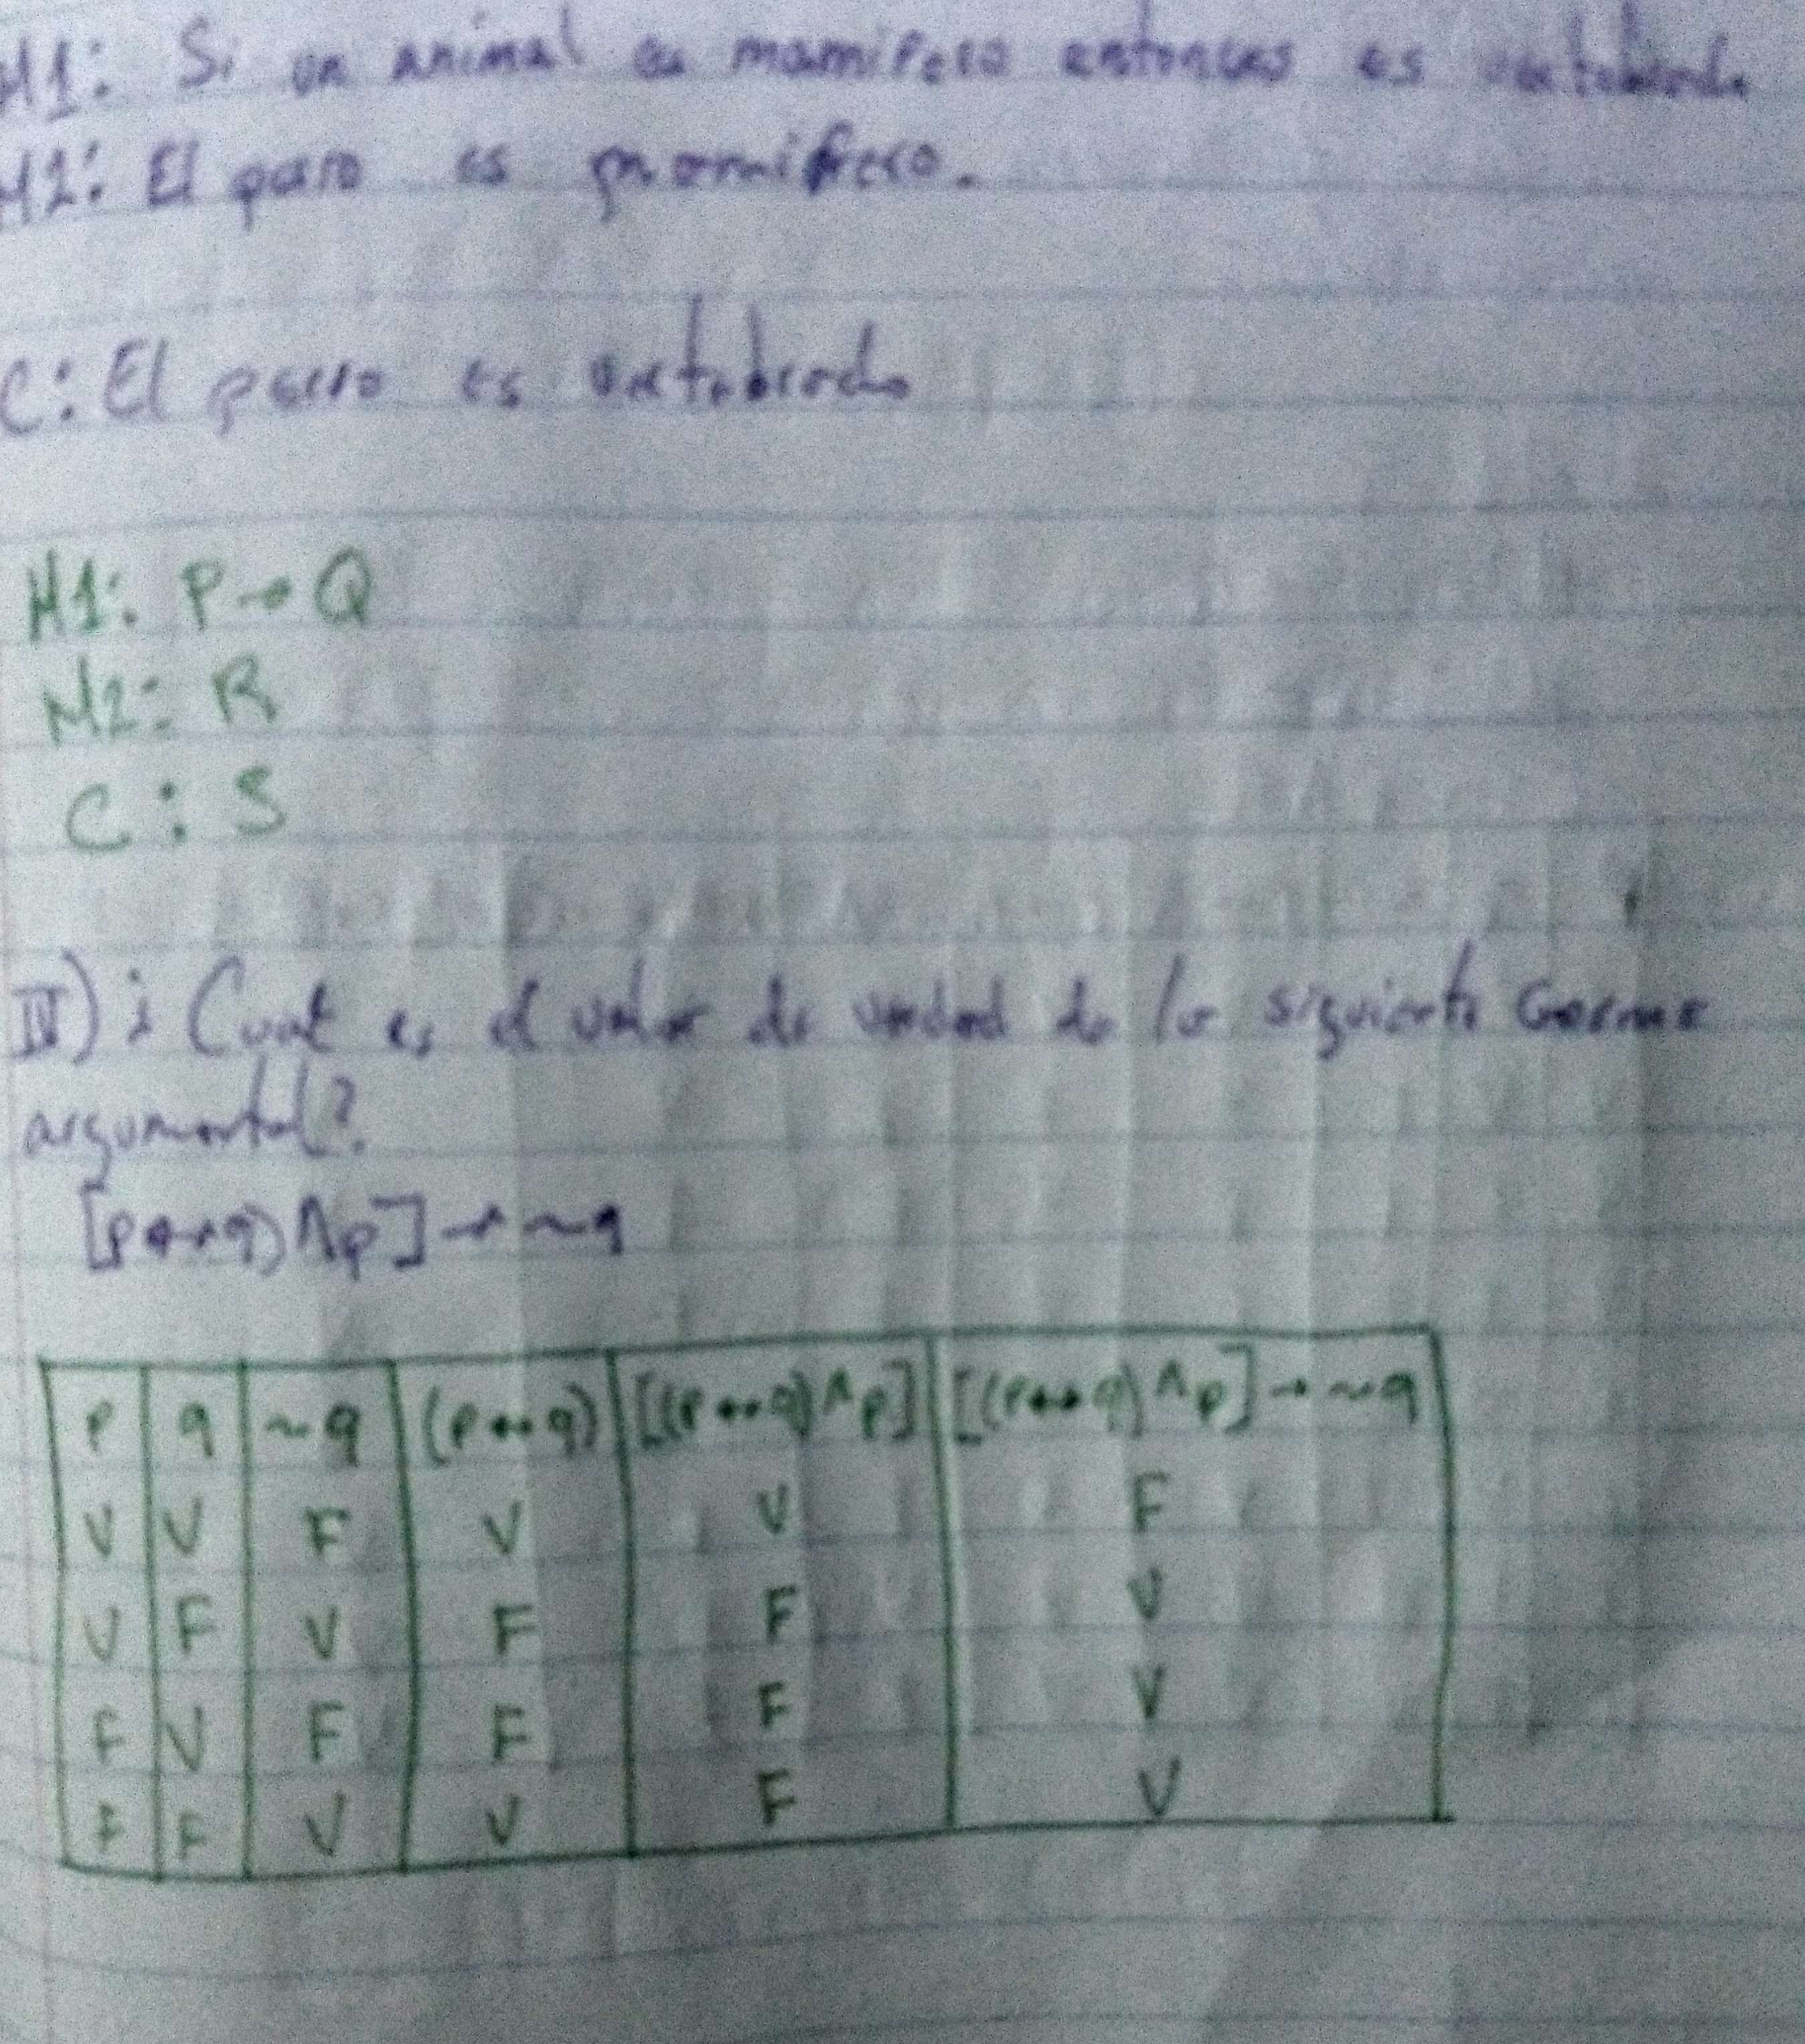 H1: Si un animal es mamifero entonces es vertebrado
H2: El perro es mamifero.
C: El perro es vertebrado
H1: P → Q
H2: R
C : S
IV) ¿Cual es el valor de verdad de la siguiente forma
argumental?
[p ↔ q) ∧ p] → ~q
p q ~q (p ↔ q) [(p ↔ q) ∧ p] [(p ↔ q) ∧ p] → ~q
V V F V V F
V F V F F V
F V F F F V
F F V V F V